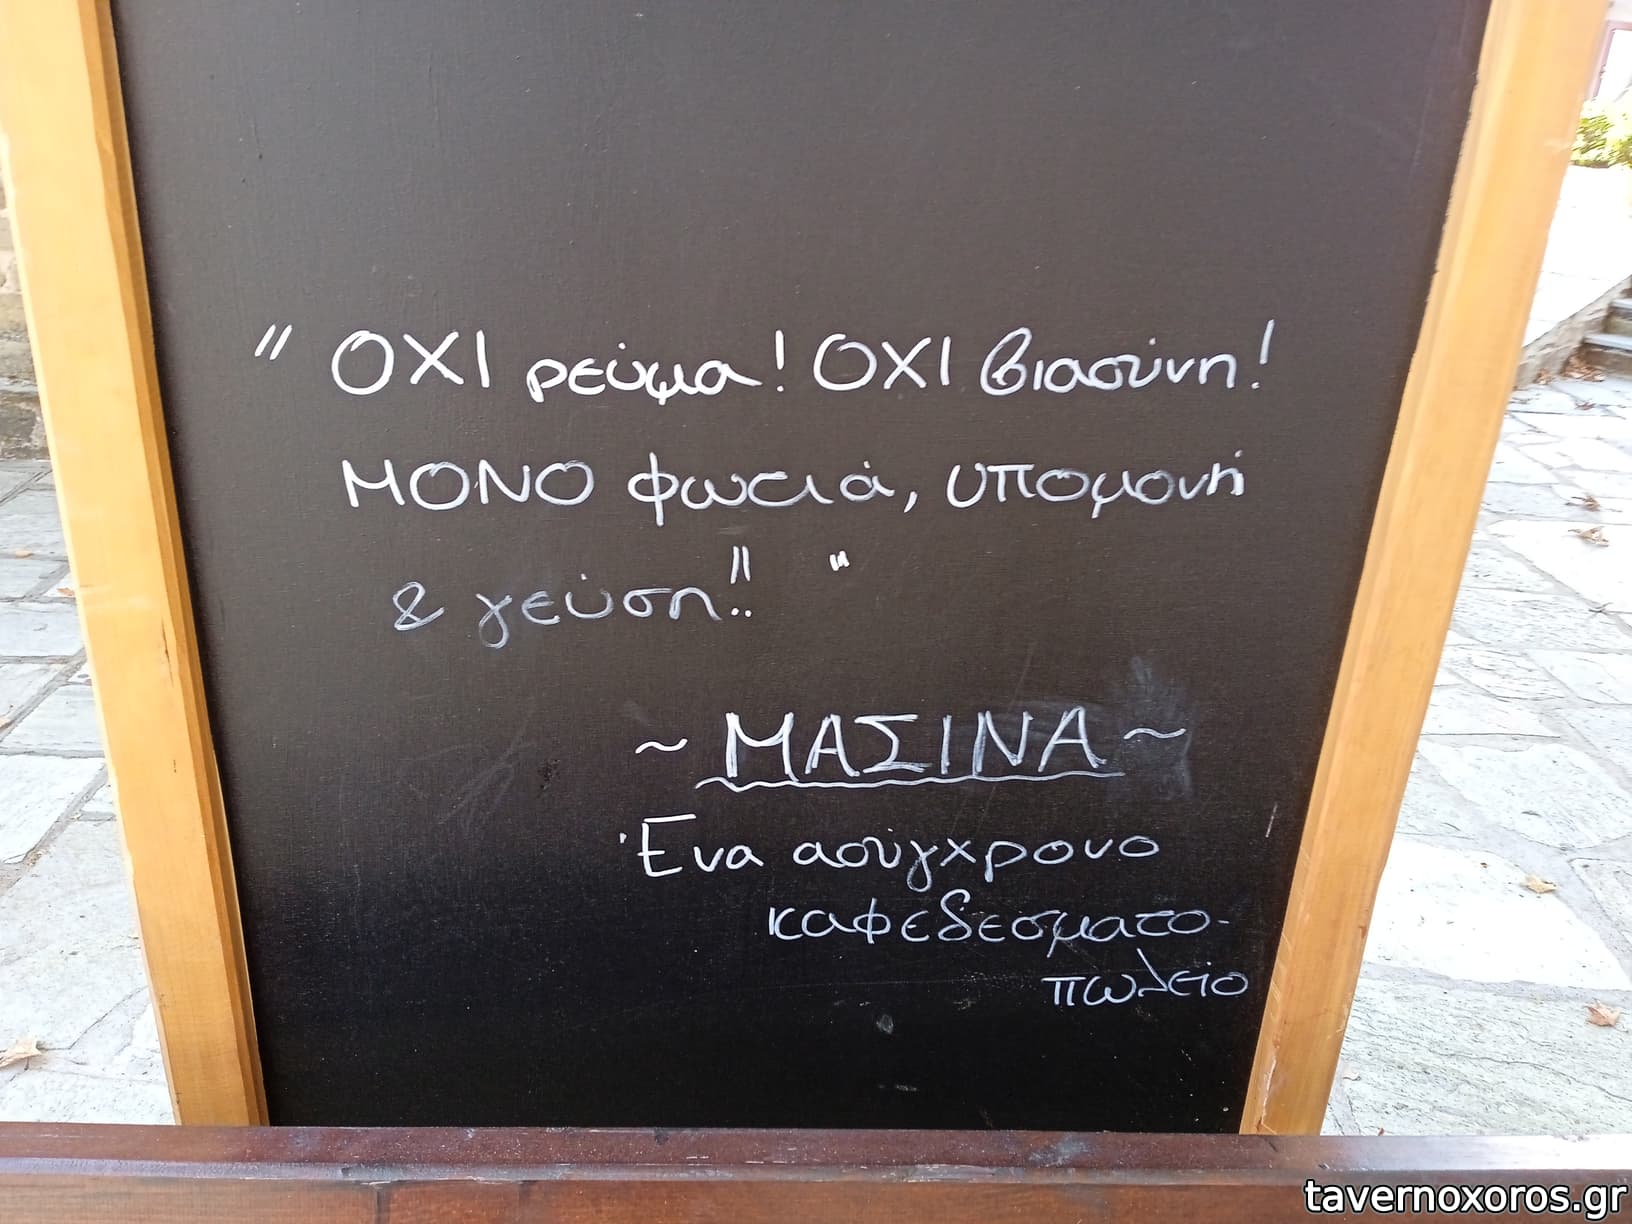 " ΟΧΙ ρεύμα! ΟΧΙ βιασύνη!
ΜΟΝΟ φωτιά, υπομονή
& γεύση!! "
~ ΜΑΣΙΝΑ ~
Ένα ασύγχρονο
καφεδεσματο-
πωλείο
tavernoxoros.gr